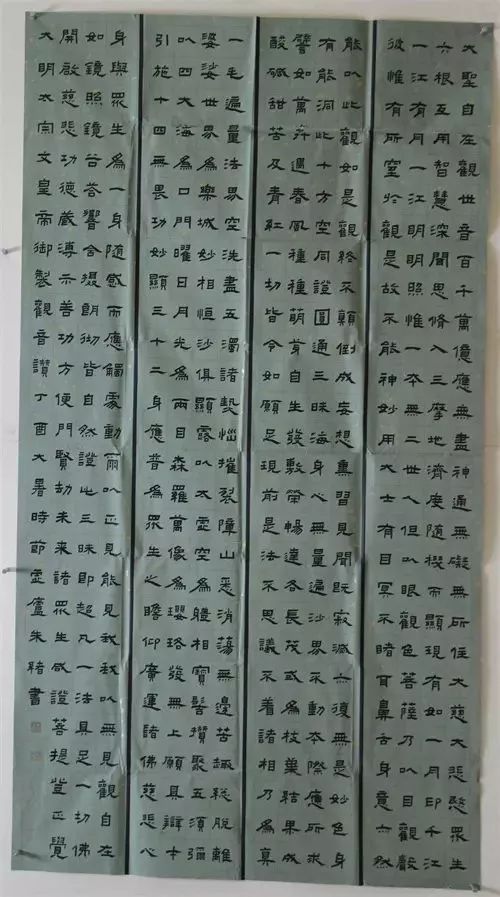 大聖自在觀世音百千萬億應無盡神通無礙無所住大慈大悲愍眾生
六根互用智慧深聞思脩入三摩地濟度隨機而顯現有如一月印千江
一江有月一江明明照惟一本無二世人但㠯眼觀色菩薩乃㠯目觀聲
彼惟有所窒於觀是故不能神妙用大士有目冥不睹耳鼻舌身意亦然
能㠯此觀如是觀終不顛倒成妄想熏習見聞既寂滅亦復無是妙色身
有能洞此十方空同證圓通三昧海身心無量遍沙界不動本際應所求
譬如萬卉遇春風種種萌芽自生發敷榮暢達各長茂或為枝葉結果成
酸碱甜苦及青紅一切皆令如願足現前是法不思議不着諸相乃為真
一毛遍量法界空洗盡五濁諸熱惱摧裂障山悉消蕩無邊苦趣總脫離
娑娑世界為樂城妙相恒沙俱顯露㠯太虛空為體相寶髻攢聚五須彌
㠯四大海為口門曜日月光為兩目森羅萬像為瓔珞發無上願具辯才
引施十四無畏功妙顯三十二身應普為眾生之瞻仰廣運諸佛慈悲心
身與眾生為一身隨感而應觸處動爾㠯正見能見我我㠯無見觀自在
如鏡照鏡谷荅響含攝朗徹皆自然證此三昧即超凡一法具足一切佛
開啟慈悲功德藏溥示善功方便門賢劫未來諸眾生咸證菩提登正覺
大明太宗文皇帝御製觀音讚丁酉大暑時節虛廬朱緒書